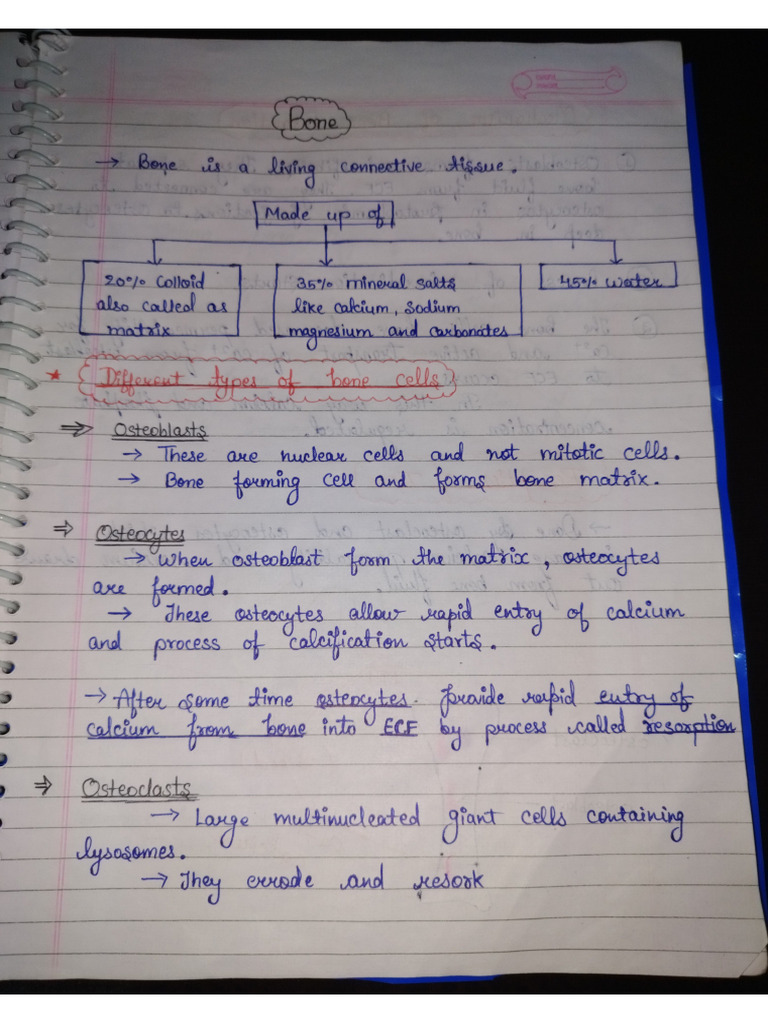 Bone
→ Bone is a living connective tissue.
Made up of
20% Colloid
also called as
matrix
35% mineral salts
like calcium, sodium
magnesium and carbonates
45% water
* Different types of bone cells
⇒ Osteoblasts
→ These are nuclear cells and not mitotic cells.
→ Bone forming cell and forms bone matrix.
⇒ Osteocytes
→ When osteoblast form the matrix, osteocytes
are formed.
→ These osteocytes allow rapid entry of calcium
and process of calcification starts.
→ After some time osteocytes provide rapid entry of
calcium from bone into ECF by process called resorption
⇒ Osteoclasts
→ Large multinucleated giant cells containing
lysosomes.
→ They errode and resork